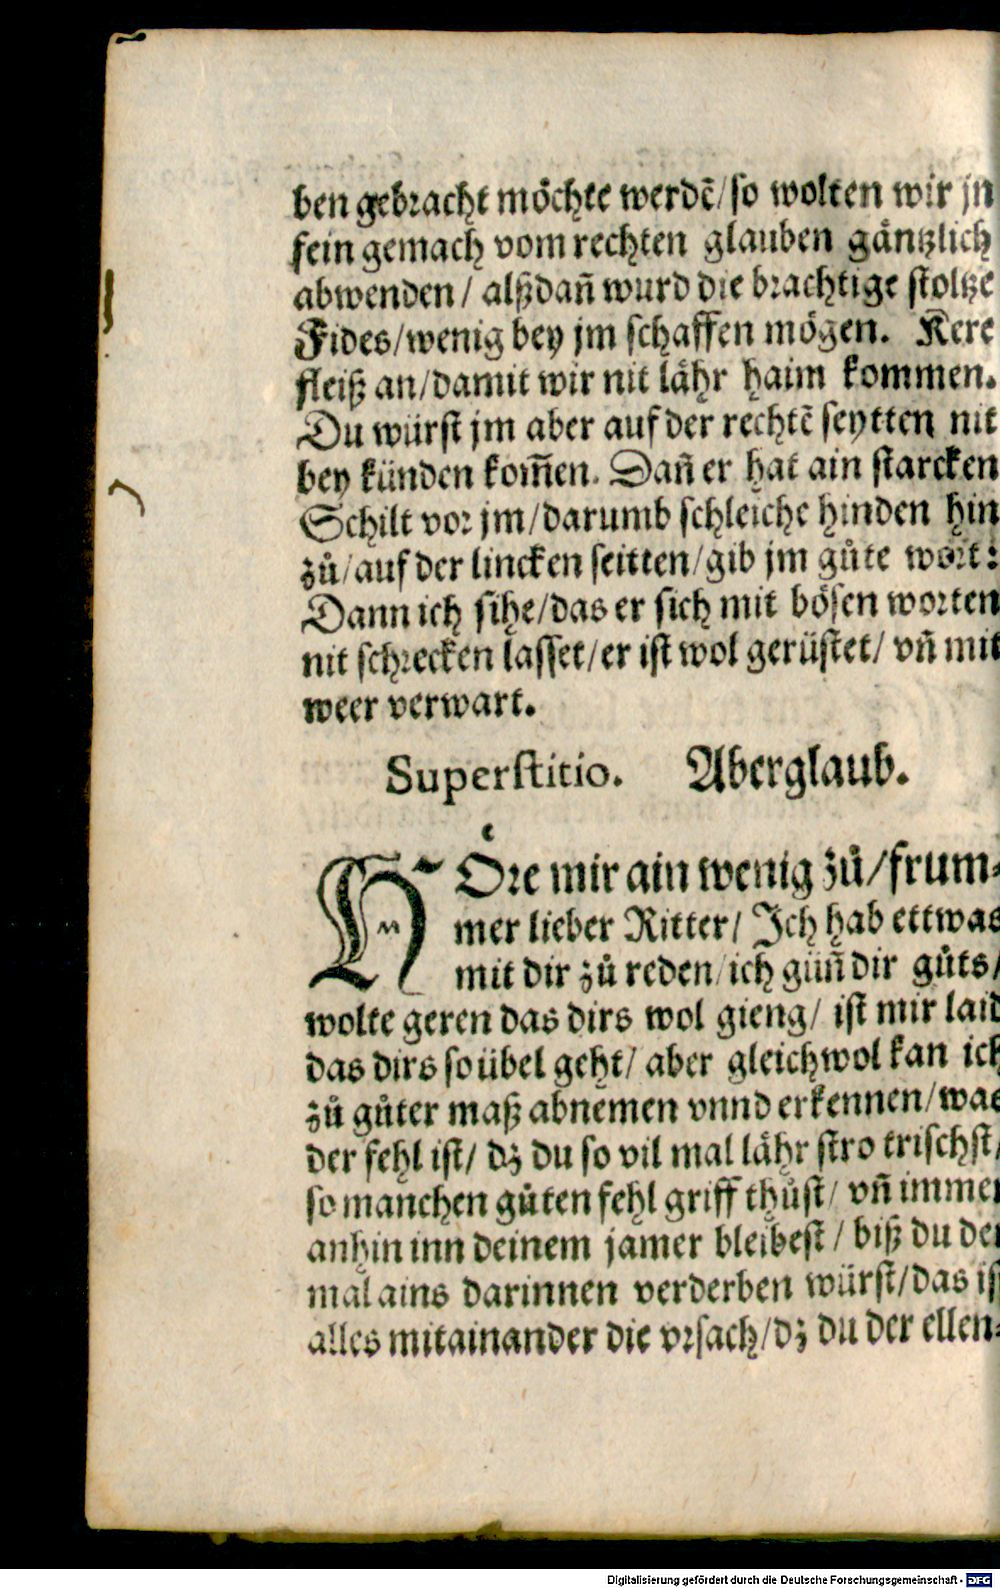 ben gebracht möchte werdē/so wolten wir jn
fein gemach vom rechten glauben gäntzlich
abwenden / alßdañ wurd die brachtige stoltze
Fides/wenig bey jm schaffen mögen. Kere
fleiß an/damit wir nit lähr haim kommen.
Du würst jm aber auf der rechtē seytten nit
bey künden kom̄en. Dañ er hat ain starcken
Schilt vor jm/darumb schleiche hinden hin
zů/auf der lincken seitten/gib jm gůte wort:
Dann ich sihe/das er sich mit bösen worten
nit schrecken lasset/er ist wol gerüstet/ vñ mit
weer verwart.
Superstitio. Aberglaub.
HÖre mir ain wenig zů/frum-
mer lieber Ritter/ Ich hab ettwas
mit dir zů reden/ich güñ dir gůts/
wolte geren das dirs wol gieng/ ist mir laid
das dirs so übel geht/ aber gleichwol kan ich
zů gůter maß abnemen vnnd erkennen/was
der fehl ist/ dz du so vil mal lähr stro trischst/
so manchen gůten fehl griff thůst/ vñ immer
anhin inn deinem jamer bleibest / biß du der
mal ains darinnen verderben würst/das ist
alles mitainander die vrsach/dz du der ellen-
Digitalisierung gefördert durch die Deutsche Forschungsgemeinschaft - DFG